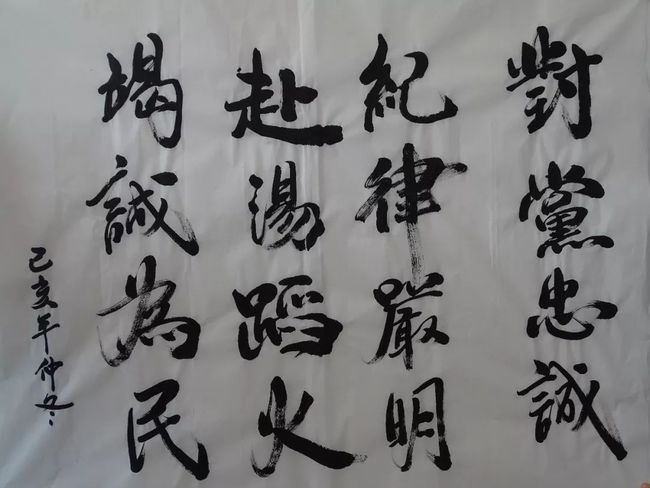 對黨忠誠
紀律嚴明
赴湯蹈火
竭誠為民
己亥年仲冬